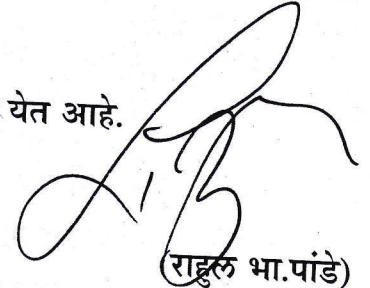 येत आहे.
(राहुल भा.पांडे)